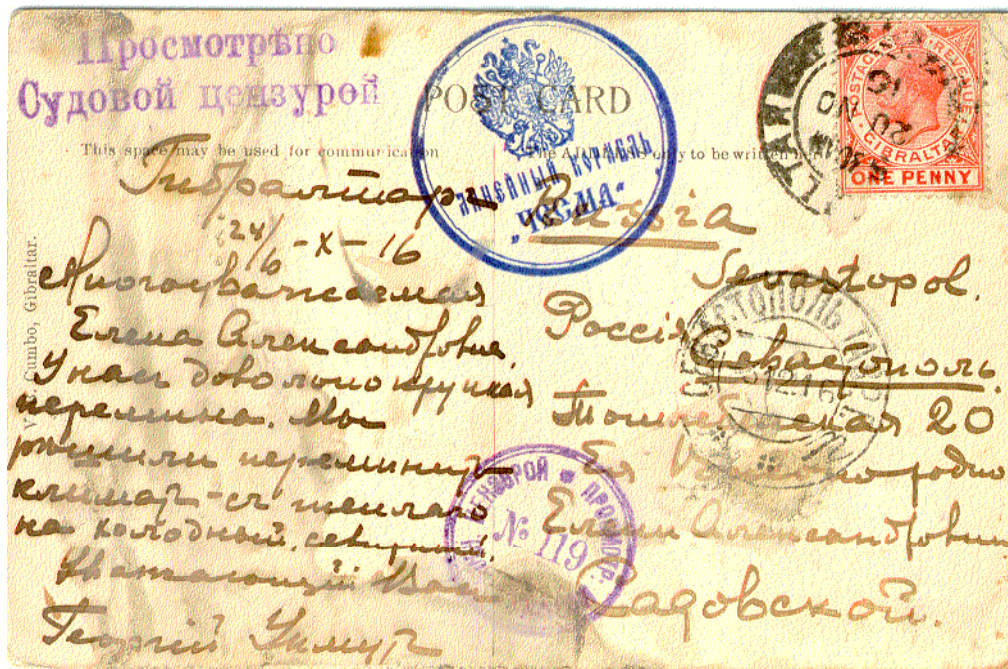 Просмотрѣно
Судовой цензурой
POST CARD
This space may be used for communication
The Address only to be written
ЛИНЕЙНЫЙ КОРАБЛЬ
„ЧЕСМА“
POSTAGE & REVENUE
GIBRALTAR
ONE PENNY
20 NO
16
V. B. Cumbo, Gibraltar.
Гибралтаръ
24/ -X-16
Многоуважаемая
Елена Александровна
У нас довольно крупная
перемѣна. Мы
рѣшили перемѣнить
климат - съ теплаго
на холодный.
Уважающий Вас
Георгій
Russia
Sevastopol.
Россія
Севастополь.
20
Ея Высокородію
Еленѣ Александровнѣ
Садовской.
СЕВАСТОПОЛЬ
ЦЕНЗУРОЙ ПРОСМОТР.
№ 119